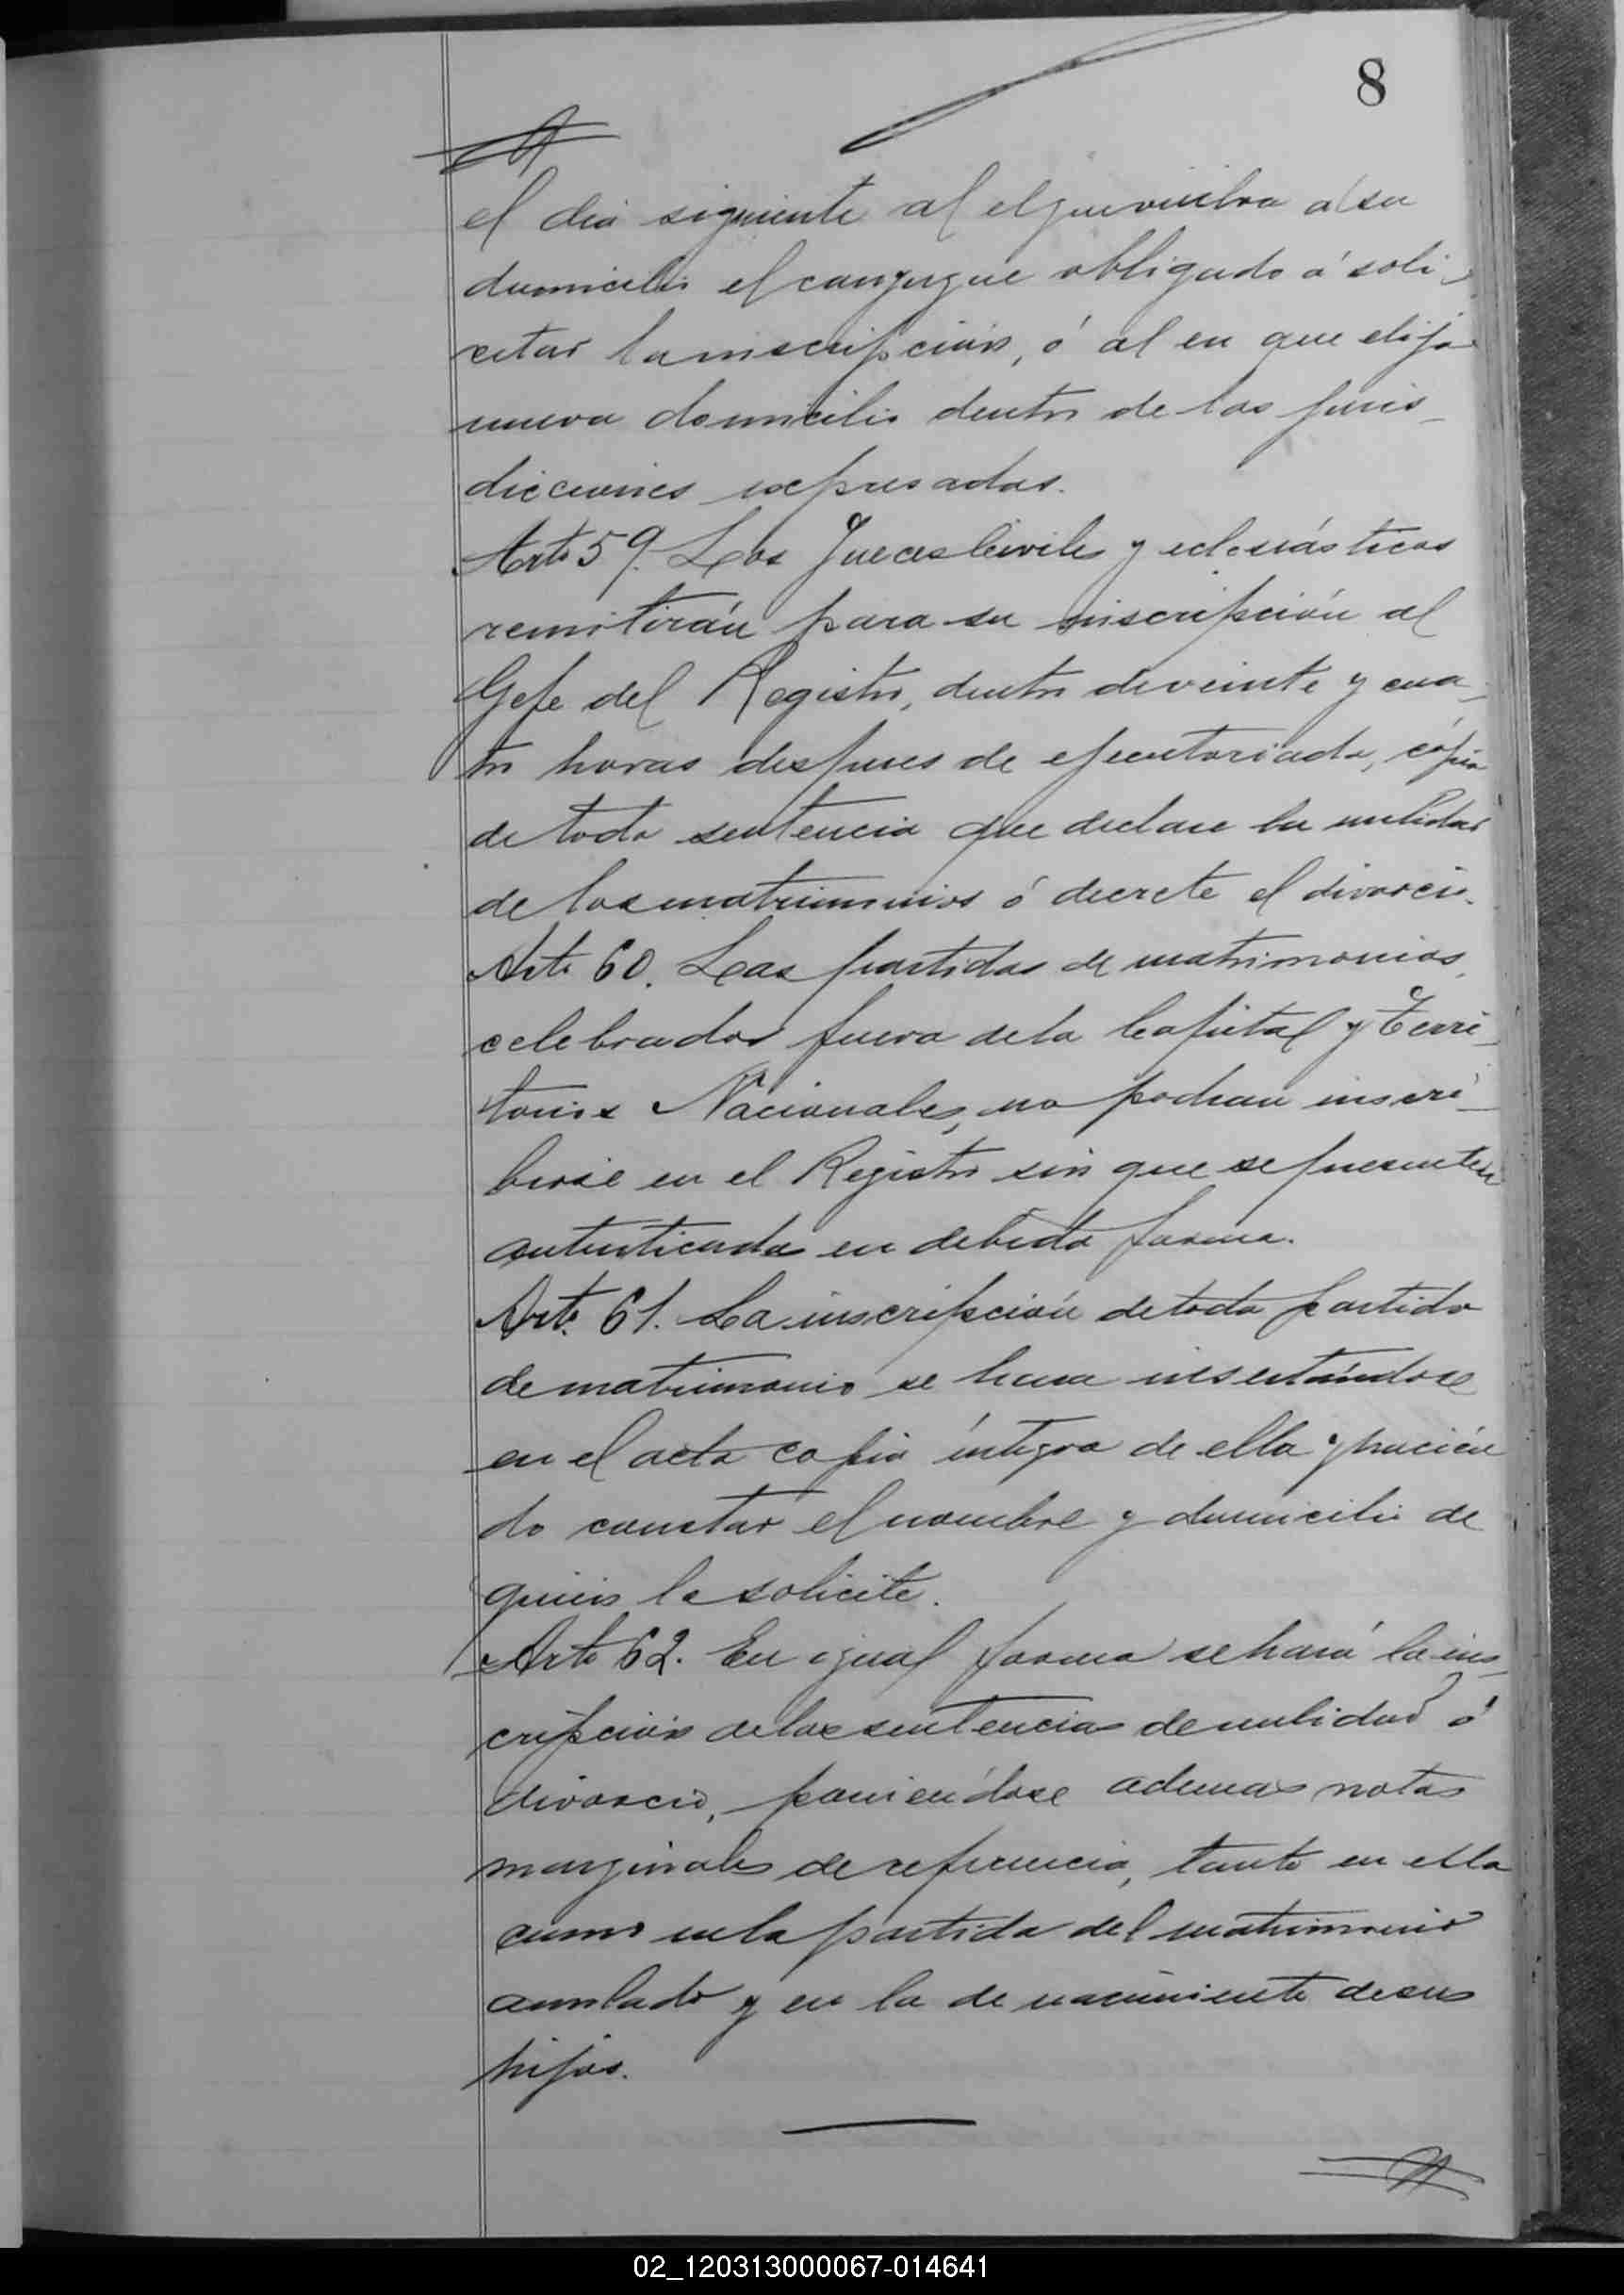 8
el dia siguiente al el que vuelva a su
domicilio el conyugue obligado á soli-
citar la inscripción, ó al en que elija
nuevo domicilio dentro de las juris-
dicciones expresadas.
Arto 59. Los Jueces Civiles y eclesiásticos
remitirán para su inscripción al
Gefe del Registro, dentro de veinte y cua-
tro horas despues de ejecutoriada, cópia
de toda sentencia que declare la nulidad
de los matrimonios ó decrete el divorcio.
Arto 60. Las partidas de matrimonios,
celebrados fuera de la Capital y Terri-
torios Nacionales, no podran inscri-
birse en el Registro sin que se presenten
autenticadas en debida forma.
Arto. 61. La inscripción de toda partida
de matrimonio se hara insertándose
en el acta copia íntegra de ella y hacien
do constar el nombre y domicilio de
quien lo solicite.
Arto 62. En igual forma se hará la ins-
cripción de las sentencias de nulidad ó
divorcio, poniendose ademas notas
marginales de referencia, tanto en ella
como en la partida del matrimonio
anulado y en la de nacimiento de sus
hijos.
02_120313000067-014641